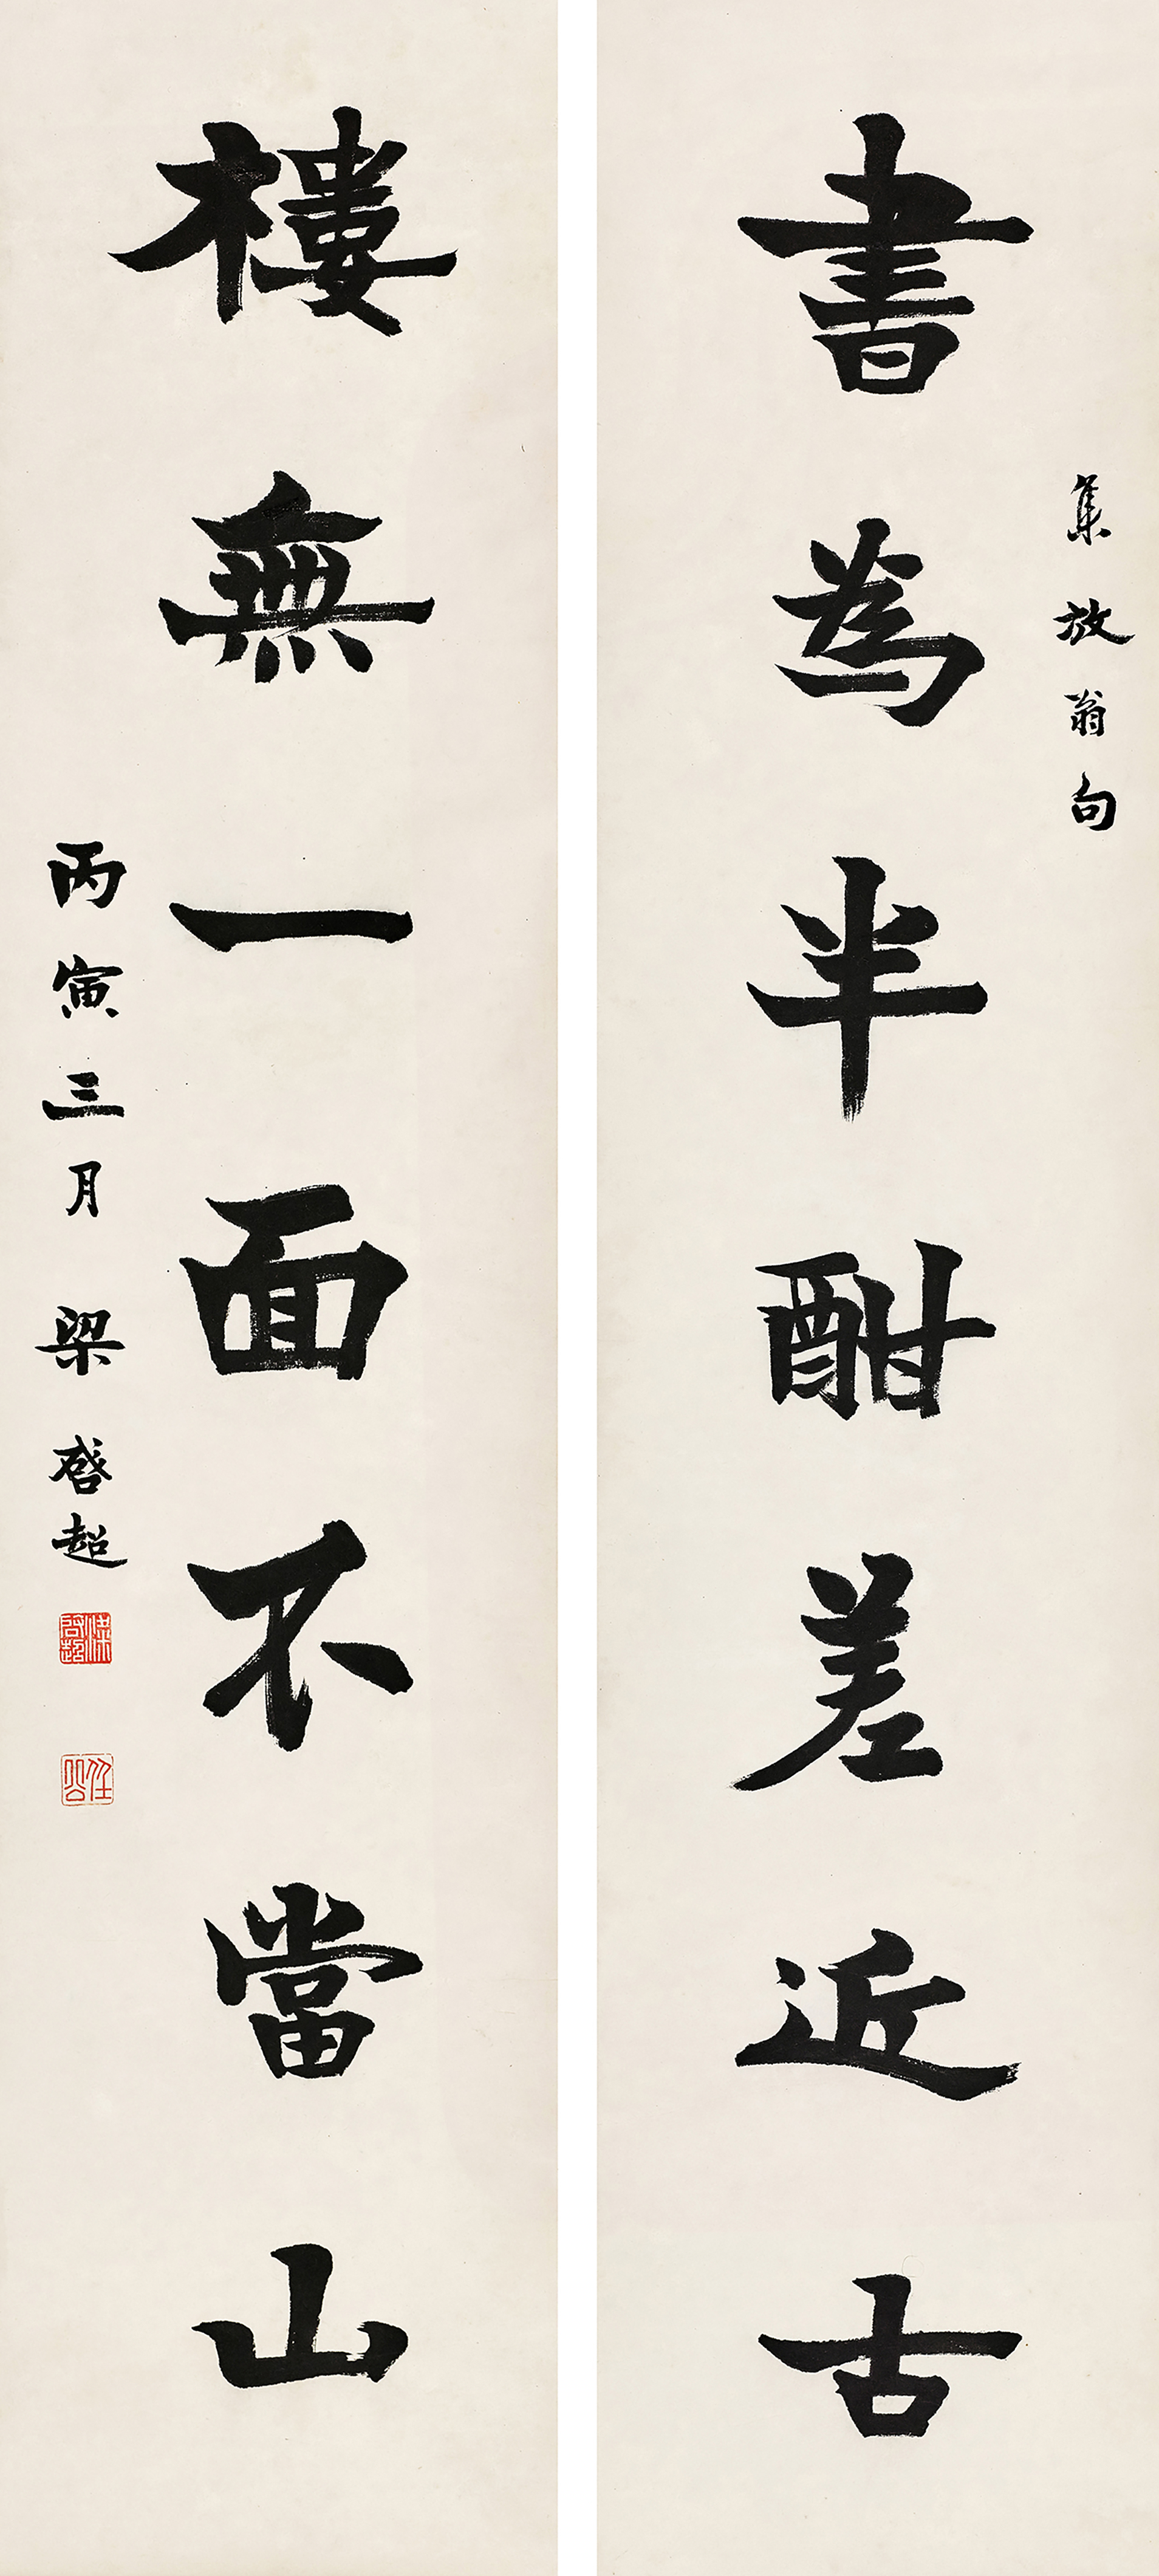 集放翁句
書為半酣差近古
樓無一面不當山
丙寅三月 梁啓超
梁啓超
任公